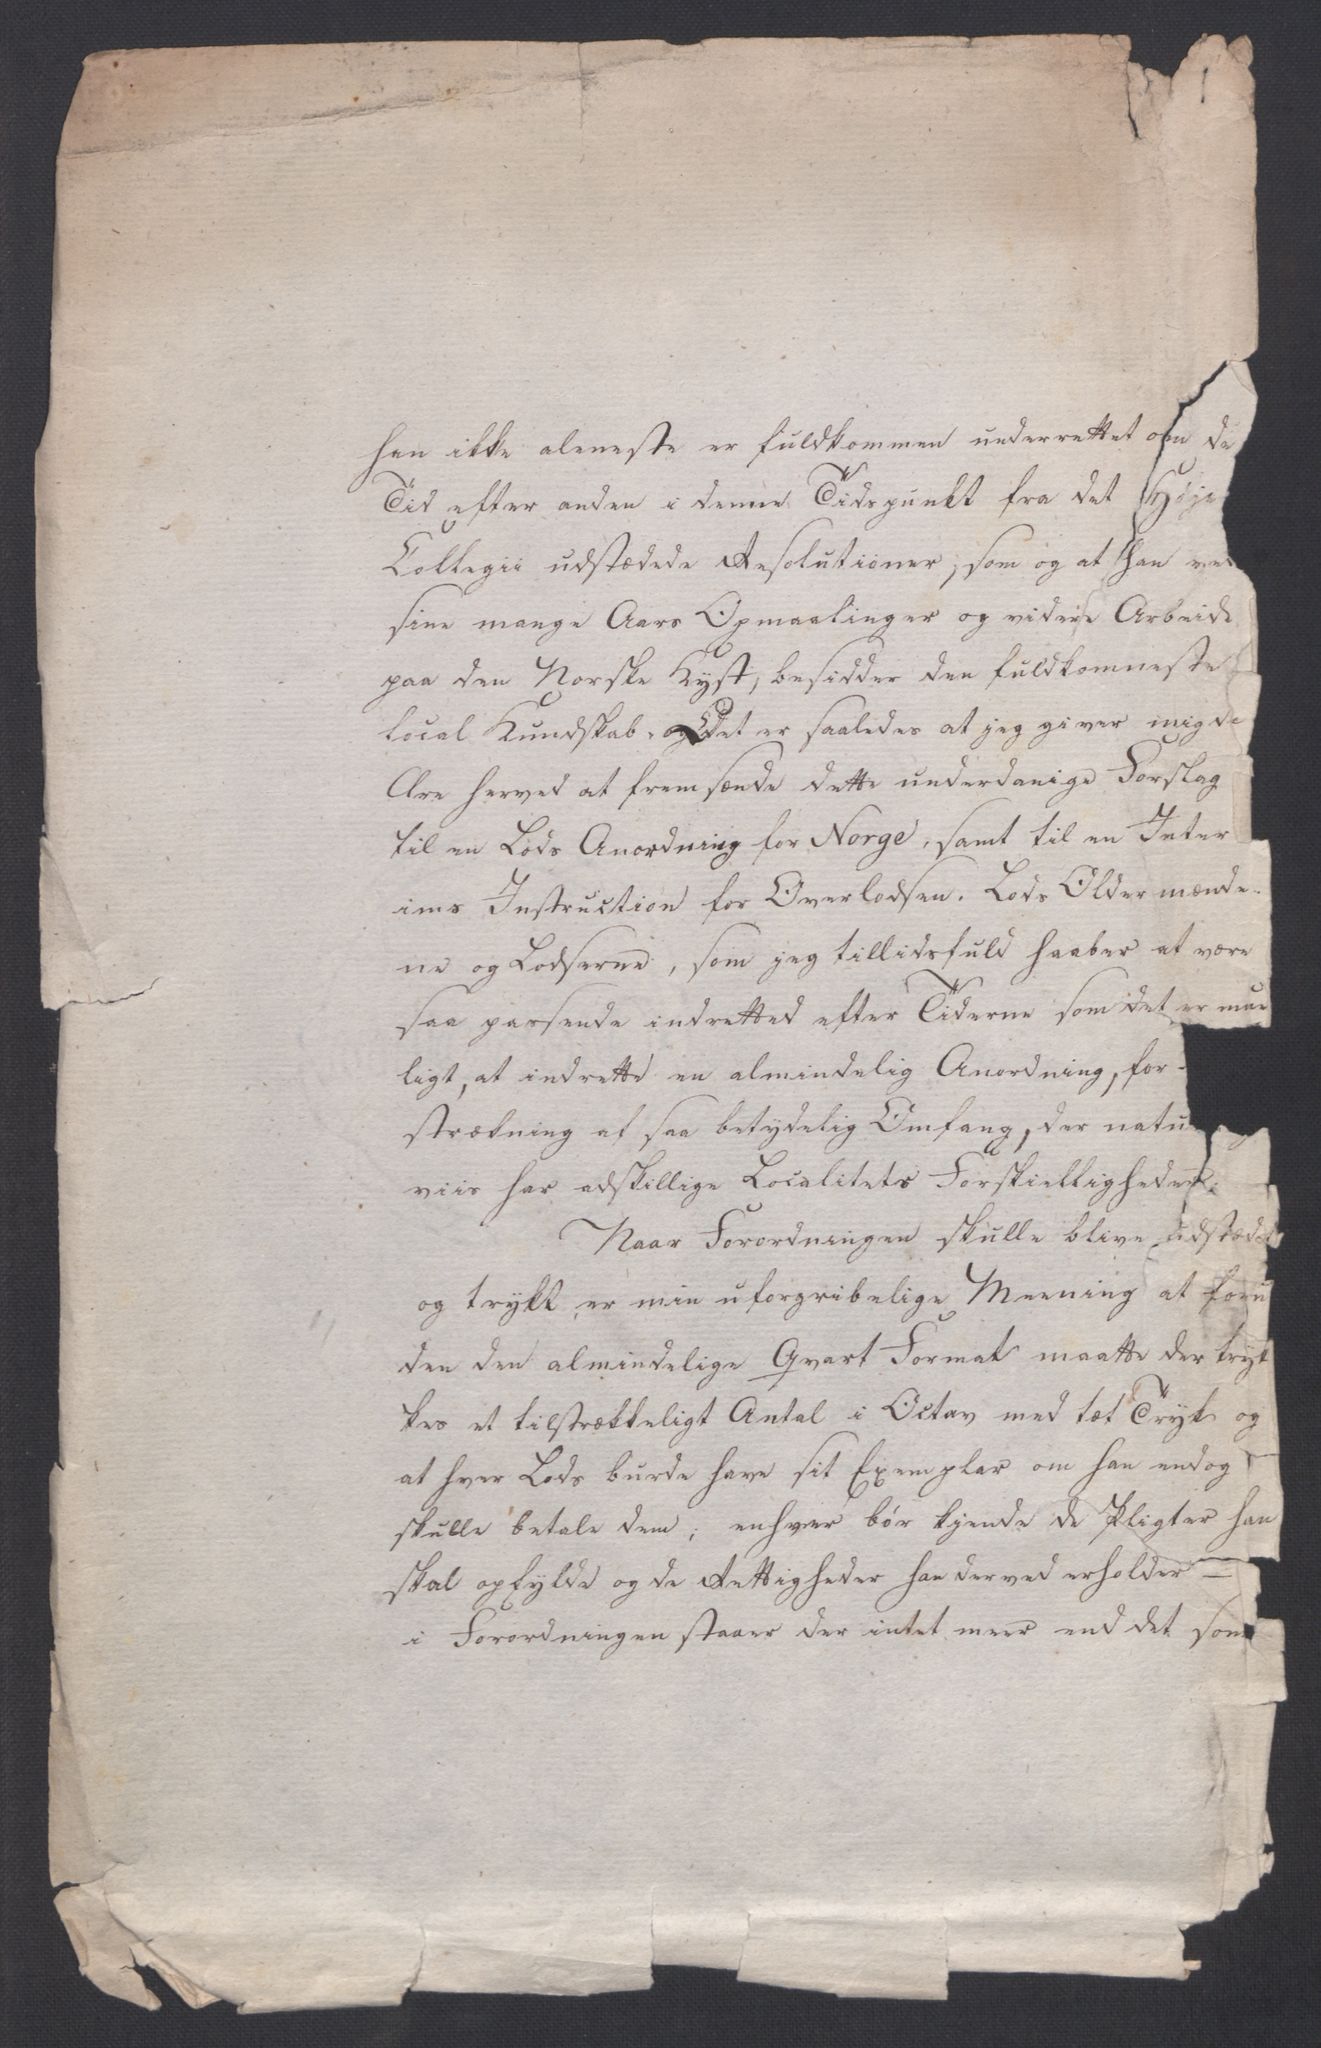 han ikke aleneste er fuldkommen underrettet om de
Tid efter anden i denne Tidspunkt fra det Høje
Collegii udstædede Resolutioner, som og at han ved
sine mange Aars Opmaalinger og videre Arbeide
paa den Norske Kyst, besidder den fuldkomneste
local Kundskab. og Det er saaledes at jeg giver mig de
Ære herved at fremsænde dette underdanige Forslag
til en Lods Anordning for Norge, samt til en Inter
ims Instruction for Overlodsen. Lods Oldermænde-
ne og Lodserne, som jeg tillidsfuld haaber at være
saa passende indretted efter Tiderne som det er mue
ligt, at indrette en almindelig Anordning, for
strækning af saa betydelig Omfang, der natu
viis har adskillige Localitets Forskielligheder.
Naar Forordningen skulle blive udstædet
og trykt er min uforgribelige Meening at foru
den den almindelige Qvart Format maatte der tryk
kes et tilstrækkeligt Antal i Octav med tæt Tryk og
at hver Lods burde have sit Exemplar om han endog
skulle betale dem; enhver bør kjende de Pligter han
skal opfylde og de Rettigheder han derved erholder —
i Forordningen staaer der intet meer end det som